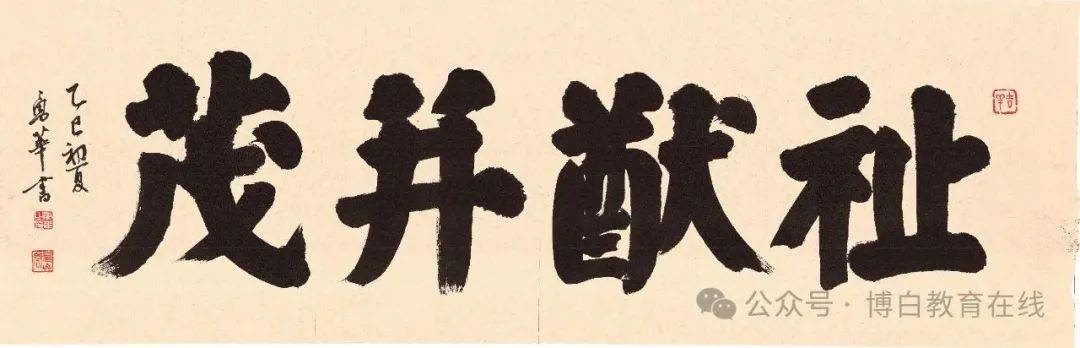 祉猷并茂
乙巳初夏
華書
公众号 · 博白教育在线